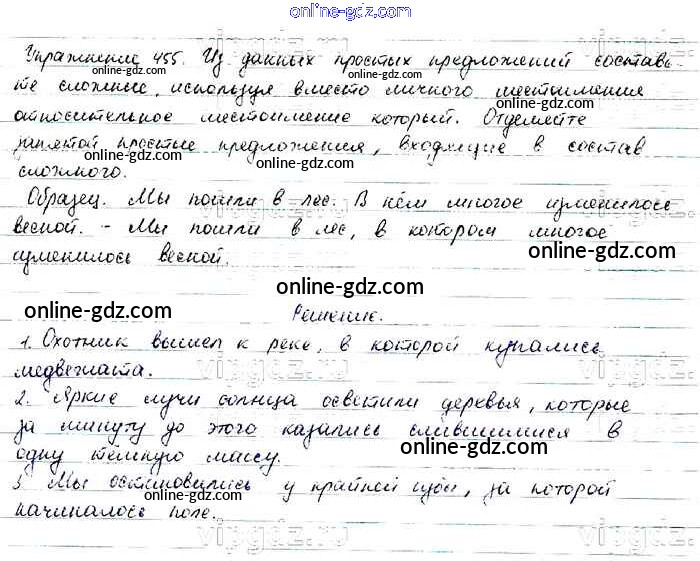 online-gdz.com
Упражнение 455. Из данных простых предложений составь-
те сложные, используя вместо личного местоимения
относительное местоимение который. Отделяйте
запятой простые предложения, входящие в состав
сложного.
Образец. Мы пошли в лес. В нём многое изменилось
весной. - Мы пошли в лес, в котором многое
изменилось весной.
Решение.
1. Охотник вышел к реке, в которой купались
медвежата.
2. Яркие лучи солнца осветили деревья, которые
за минуту до этого казались слившимися в
одну тёмную массу.
3. Мы остановились у крайней избы, за которой
начиналось поле.
online-gdz.com
online-gdz.com
online-gdz.com
online-gdz.com
online-gdz.com
online-gdz.com
online-gdz.com
online-gdz.com
online-gdz.com
online-gdz.com
online-gdz.com